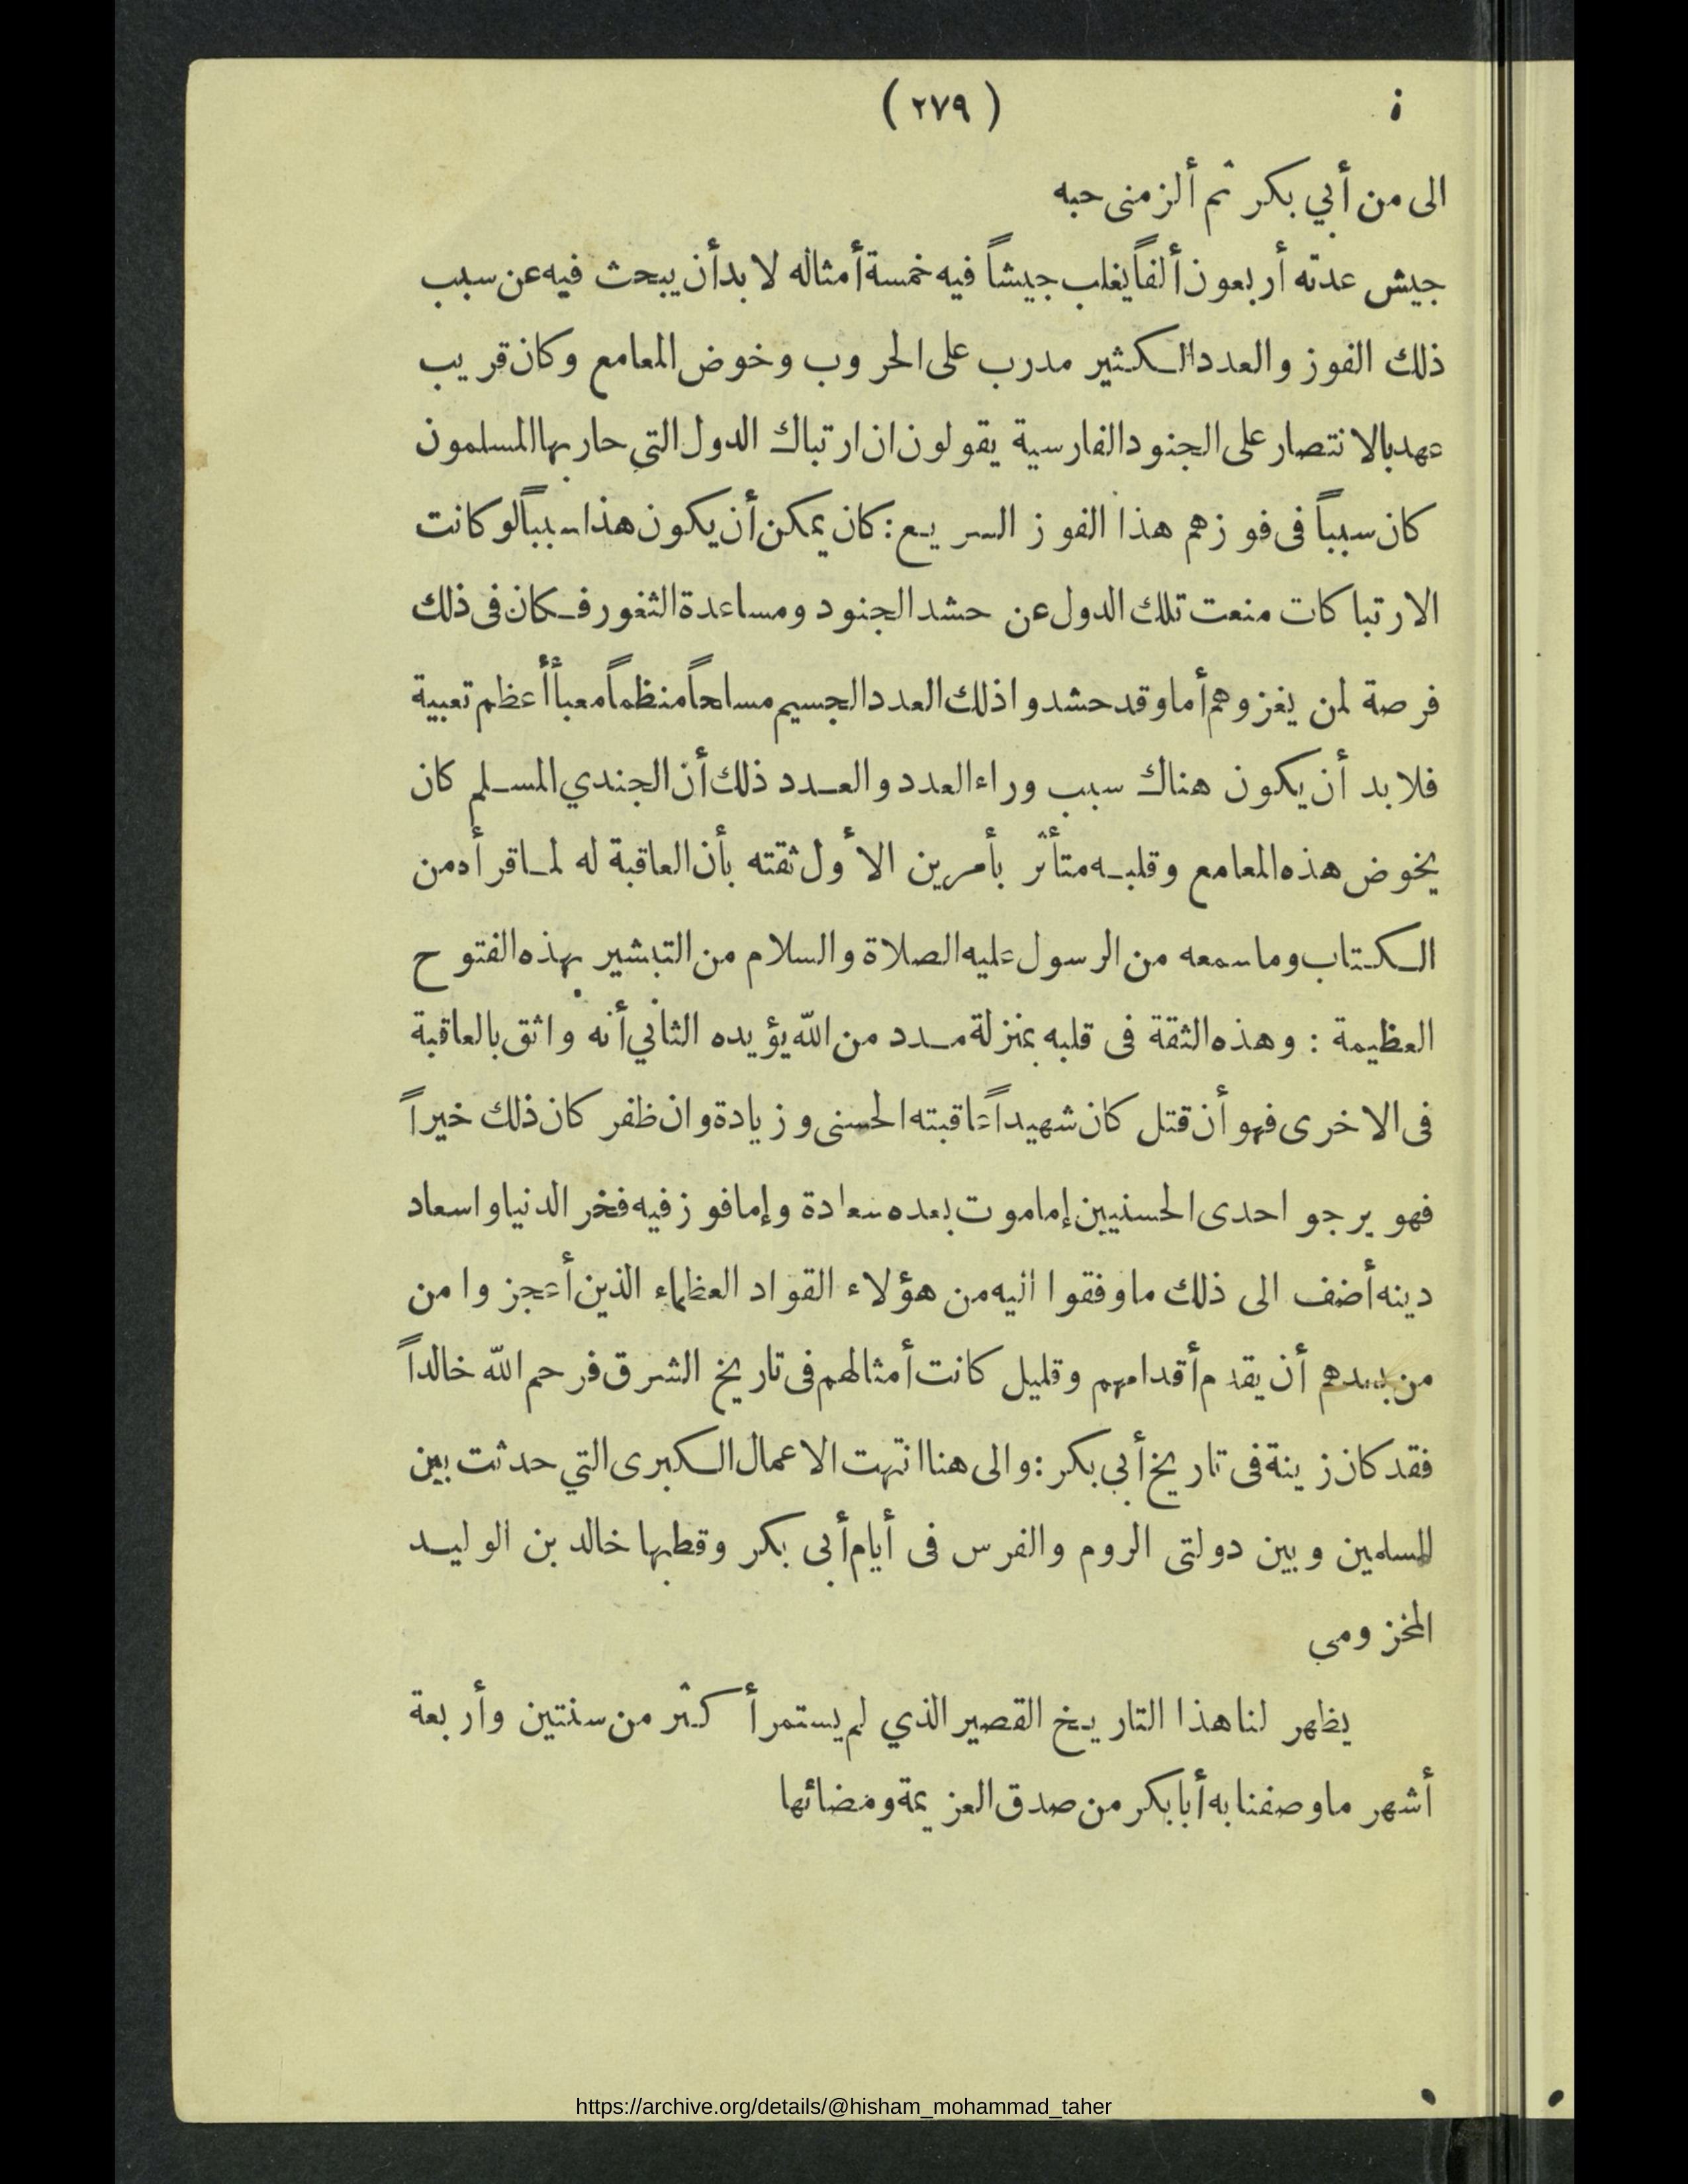 ( ٢٧٩ )
الى من أبي بكر ثم ألزمنى حبه
جيش عدته أربعون ألفاً يغلب جيشاً فيه خمسة أمثاله لا بد أن يبحث فيه عن سبب
ذلك الفوز والعدد الكثير مدرب على الحروب وخوض المعامع وكان قريب
عهد بالانتصار على الجنود الفارسية يقولون ان ارتباك الدول التي حاربها المسلمون
كان سبباً فى فوزهم هذا الفوز السريع : كان يمكن أن يكون هذا سبباً لو كانت
الارتباكات منعت تلك الدول عن حشد الجنود ومساعدة الثغور فكان فى ذلك
فرصة لمن يغزوهم أما وقد حشدوا ذلك العدد الجسيم مسلحاً منظماً معبأ أعظم تعبية
فلا بد أن يكون هناك سبب وراء العدد والعدد ذلك أن الجندي المسلم كان
يخوض هذه المعامع وقلبه متأثر بأمرين الأول ثقته بأن العاقبة له لما قرأه من
الكتاب وما سمعه من الرسول عليه الصلاة والسلام من التبشير بهذه الفتوح
العظيمة : وهذه الثقة فى قلبه بمنزلة مدد من الله يؤيده الثاني أنه واثق بالعاقبة
فى الاخرى فهو أن قتل كان شهيداً عاقبته الحسنى وزيادة وان ظفر كان ذلك خيراً
فهو يرجو احدى الحسنيين إما موت بعده سعادة وإما فوز فيه فخر الدنيا واسعاد
دينه أضف الى ذلك ما وفقوا اليه من هؤلاء القواد العظماء الذين أعجزوا من
من بعدهم أن يقدم أقدامهم وقليل كانت أمثالهم فى تاريخ الشرق فرحم الله خالداً
فقد كان زينة فى تاريخ أبي بكر : والى هنا انتهت الاعمال الكبرى التي حدثت بين
المسلمين وبين دولتى الروم والفرس فى أيام أبى بكر وقطبها خالد بن الوليد
المخزومى
يظهر لنا هذا التاريخ القصير الذي لم يستمر أكثر من سنتين وأربعة
أشهر ما وصفنا به أبا بكر من صدق العزيمة ومضائها
https://archive.org/details/@hisham_mohammad_taher